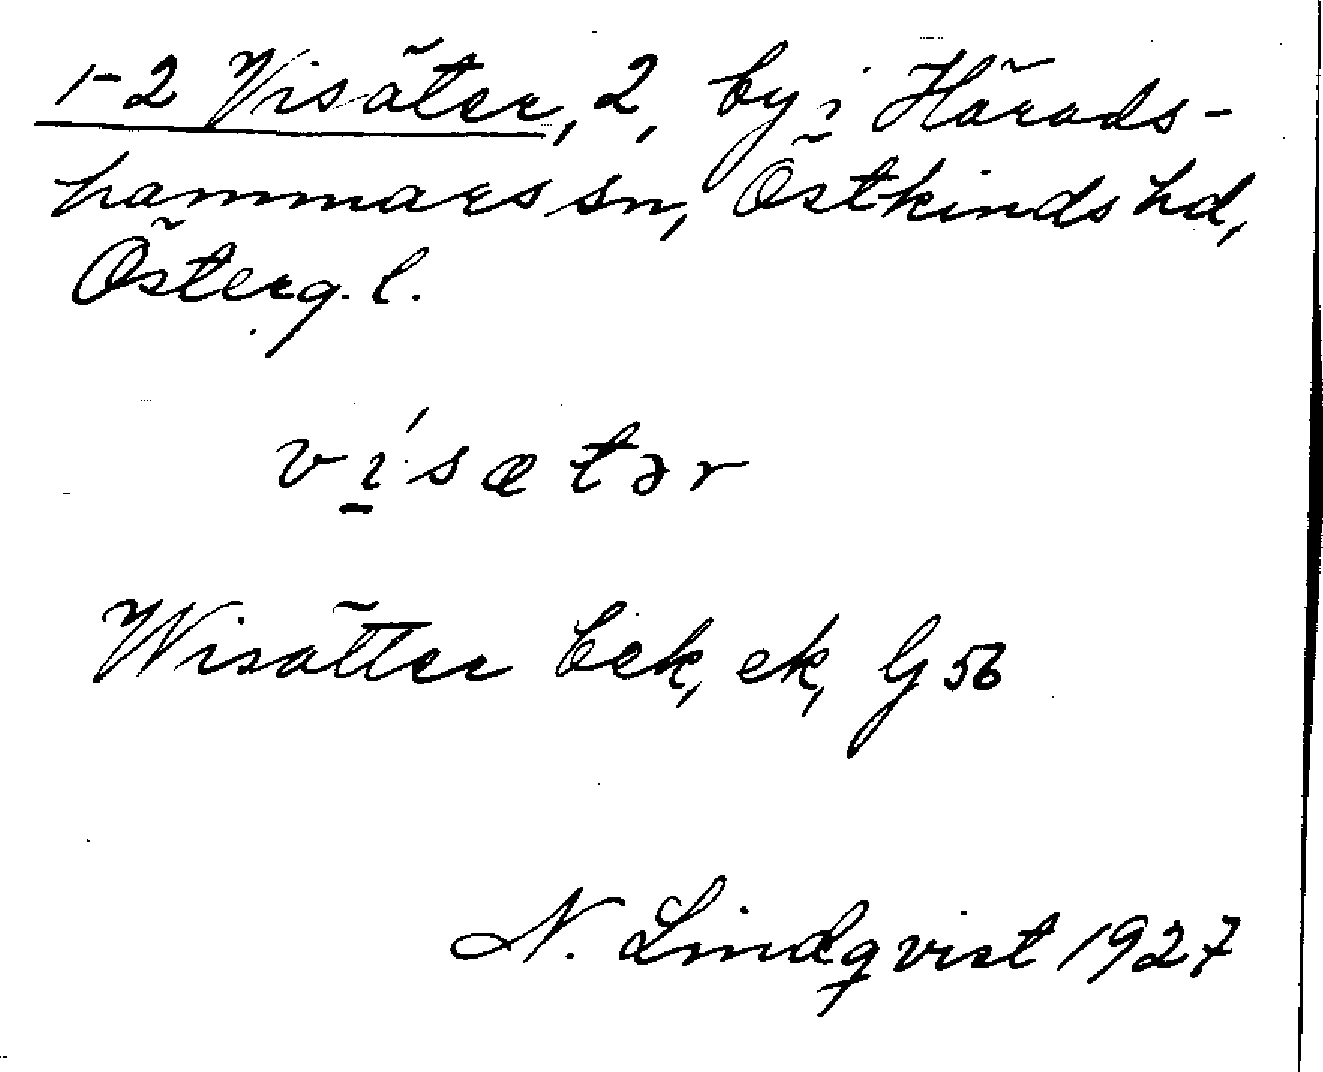 1-2 Visäter, 2, by i Härads-
hammars sn, Östkinds hd,
Österg. l.
ví̠sætər
Wisätter bek, ek, G 56
N. Lindqvist 1927